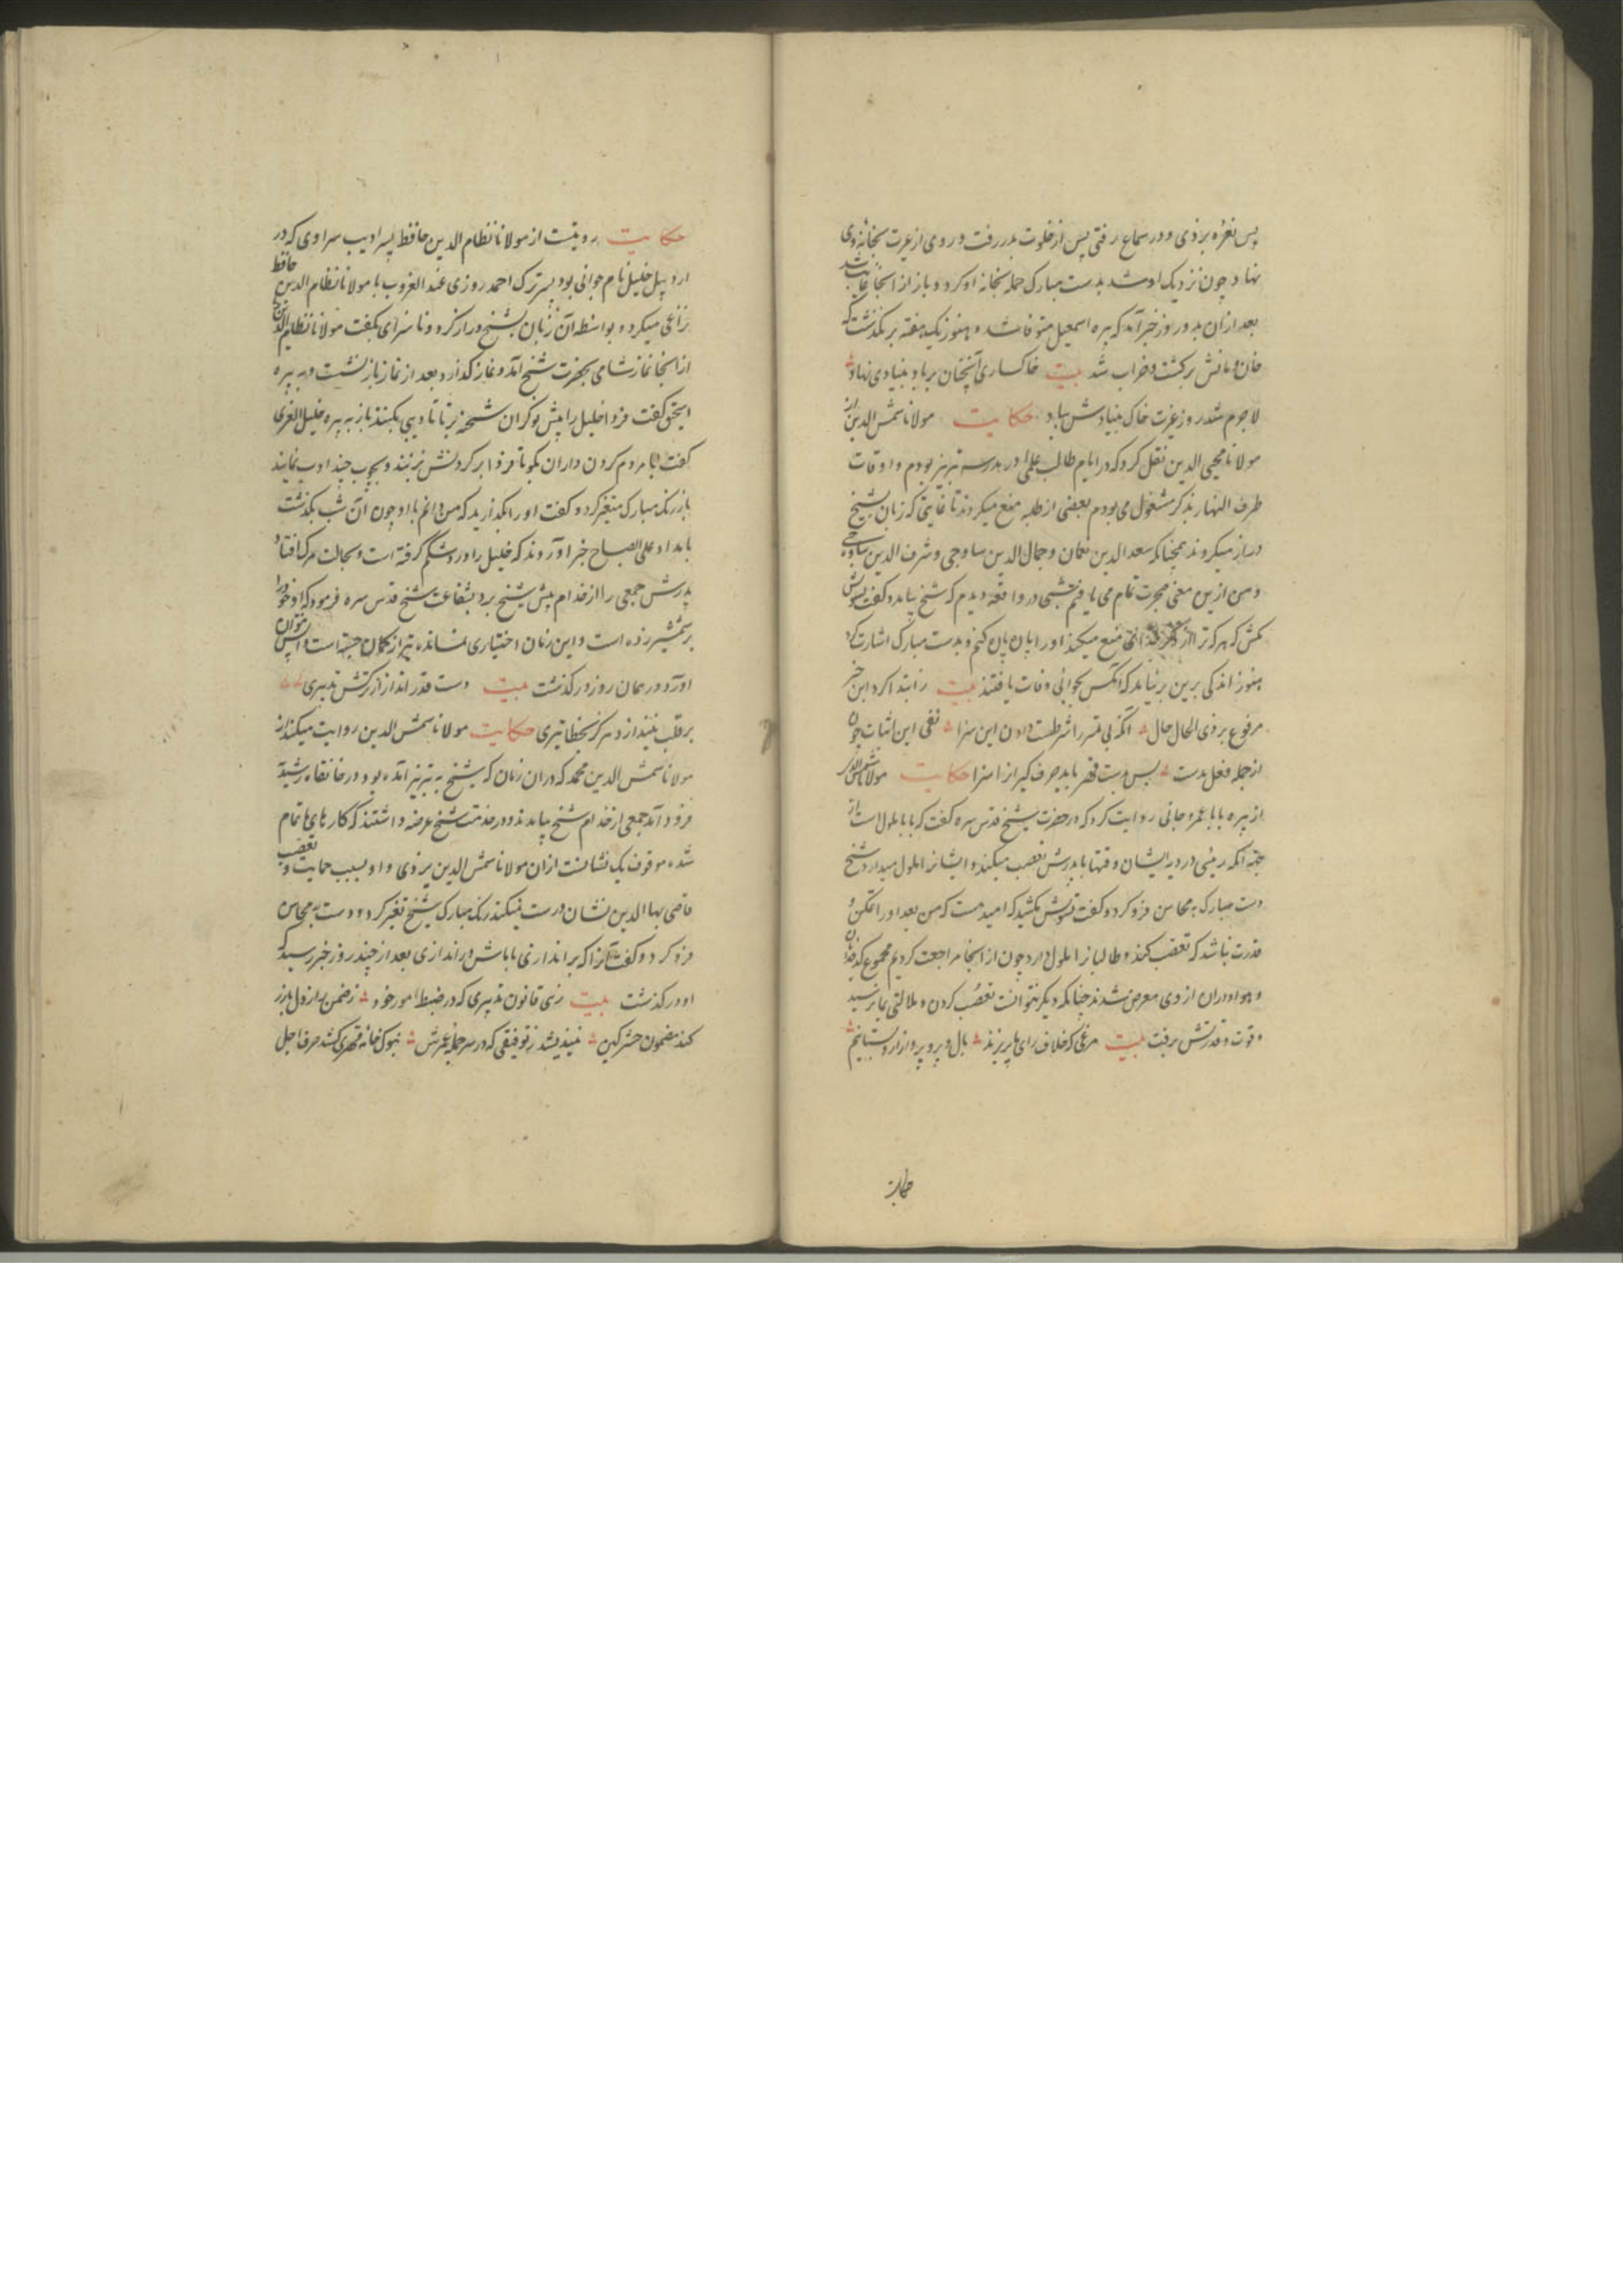 پس نعره بزدی و در سماع رفتی پس از خلوت بدر رفت و روی از غیرت بخانه وی
نهاد چون نزدیک او شد بدست مبارک حمله بخانه او کرد و باز از انجا غایب شد
بعد ازان بدو روز خبر آمد که پیره اسمعیل متوفا شد و هنوز یک هفته بر نگذشت که
خان و مانش برگشت و خراب شد بیت خاکساری آنچنان بر باد بنیادی نهاد
لاجرم شد روز غیرت خاک بنیادش بباد حکایت مولانا شمس الدین از
مولانا محیی الدین نقل کرد که در ایام طالب علمی در مدرسه تبریز بودم و اوقات
طرف النهار بذکر مشغول می بودم بعضی از طلبه منع میکردند تا غایتی که زبان بشیخ
دراز میکردند همچنانکه سعد الدین نعمان و جمال الدین ساوجی و شرف الدین ساوجی
و من ازین معنی تمام می یافتم شبی در واقعه دیدم که شیخ بیامد و کفت تشویش
مکش که هر که ترا از ذکر منع میکند او را پاره پاره کنم و بدست مبارک اشارت کرد
هنوز اندکی برین بر نیامد که آنکس بجوانی وفات یافتند بیت ز ابتدا کرد این خبر
مرفوع بر ذی الحال حال آنکه بی شرطست دادن این سزا نفی این اثبات چون
از جمله فعل بدست پس بدست قهر باید حرف کیر از اسزا حکایت مولانا شمس الدین
از پیره بابا عمروجانی روایت کرد که در حضرت شیخ قدس سره کفت که بابا ملول است از
جهة آنکه رئیسی در دیه ایشان وقتها با پدرش تعصب میکند و ایشانرا ملول میدارد شیخ
دست مبارک به محاسن فرو کرد و کفت تشویش مکشید که امید هست که من بعد او را تمکن و
قدرت نباشد که تعصب کند و طالبانرا ملول دارد چون از انجا مراجعت کردیم مجموع کدخدایان
و هواداران از وی معرض شدند چنانکه دیگر نتوانست تعصب کردن و ملالتی بما نرسید
و قوت و قدرتش برفت بیت مرغی که خلاف رای ما پر بزند بال و پر و پرواز ازو بستانیم
حکایت
حکایت روایتست از مولانا نظام الدین حافظ پسر ادیب سراوی که در
اردبیل خلیل نام جوانی بود پسر ترک احمد روزی عند الغروب با مولانا نظام الدین حافظ
نزاعی میکرد و بواسطه آن زبان بشیخ دراز کرد و ناسزای بکفت مولانا نظام الدین
از انجا نماز شامی بحضرت شیخ آمد و نماز کذارد بعد از نماز باز نشست و به پیره
اسحق کفت فردا خلیل را پیش نوکران شحنه بر تا تادیبی بکنند باز به پیره خلیل الغری
کفت با مردم کردن داران بکو تا فردا بر کردنش بزنند و بچوب چند ادب نمایند
باز رنک مبارک متغیر کرد و کفت او را بکذارید که من دانم با او چون آن شب بکذشت
بامداد علی الصباح خبر آوردند که خلیل را درد شکم کرفته است و بحالت مرک افتاد
پدرش جمعی را از خدام پیش شیخ برد بشفاعت شیخ قدس سره فرمود که او خود را
بر شمشیر زده است و این زمان اختیاری نمانده تیر از کمان جسته است واپس نتوان
آورد و در همان روز در کذشت بیت دست قدر انداز از ترکش تدبیری
بر قلب نیندازد هرکز بخطا تیری حکایت مولانا شمس الدین روایت میکند از
مولانا شمس الدین محمد که در ان زمان که شیخ به تبریز آمده بود و در خانقاه رشیدیه
فرود آمد جمعی از خدام شیخ بیامدند و در خدمت شیخ عرضه داشتند که کارهای ما تمام
شده موقوف یک نشانست ازان مولانا شمس الدین یزدی و او بسبب حمایت و تعصب
قاضی بها الدین نشان درست نمیکند رنک مبارک شیخ تغیر کرد و دست به محاسن
فرو کرد و کفت آنرا که بر اندازی با ماش در اندازی بعد از چند روز خبر رسید که
او در کذشت بیت زهی قانون تدبیری که در ضبط امور خود ز ضمن راز دل بارز
کند مضمون حشر کین نیندیشد ز توفیقی که در سر جمله عمرش بنوک خامه قهری کشد حرف اجل